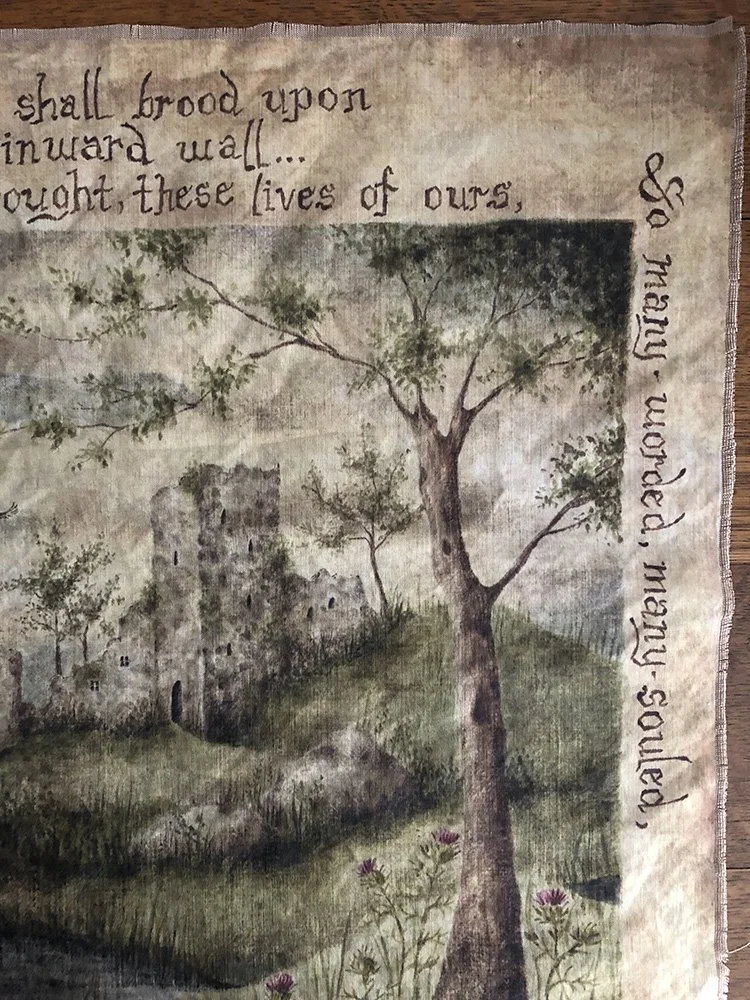 shall brood upon
inward wall...
ought, these lives of ours,
So many-worded, many-souled,